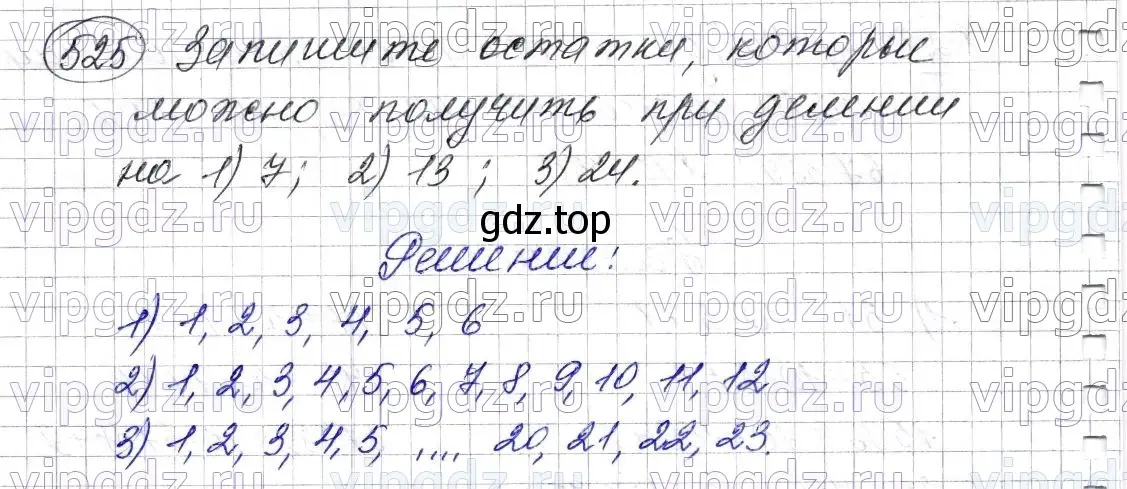 525 Запишите остатки, которые
можно получить при делении
на 1) 7; 2) 13; 3) 24.
gdz.top
Решение:
1) 1, 2, 3, 4, 5, 6
2) 1, 2, 3, 4, 5, 6, 7, 8, 9, 10, 11, 12
3) 1, 2, 3, 4, 5, .... 20, 21, 22, 23.
vipgdz.ru